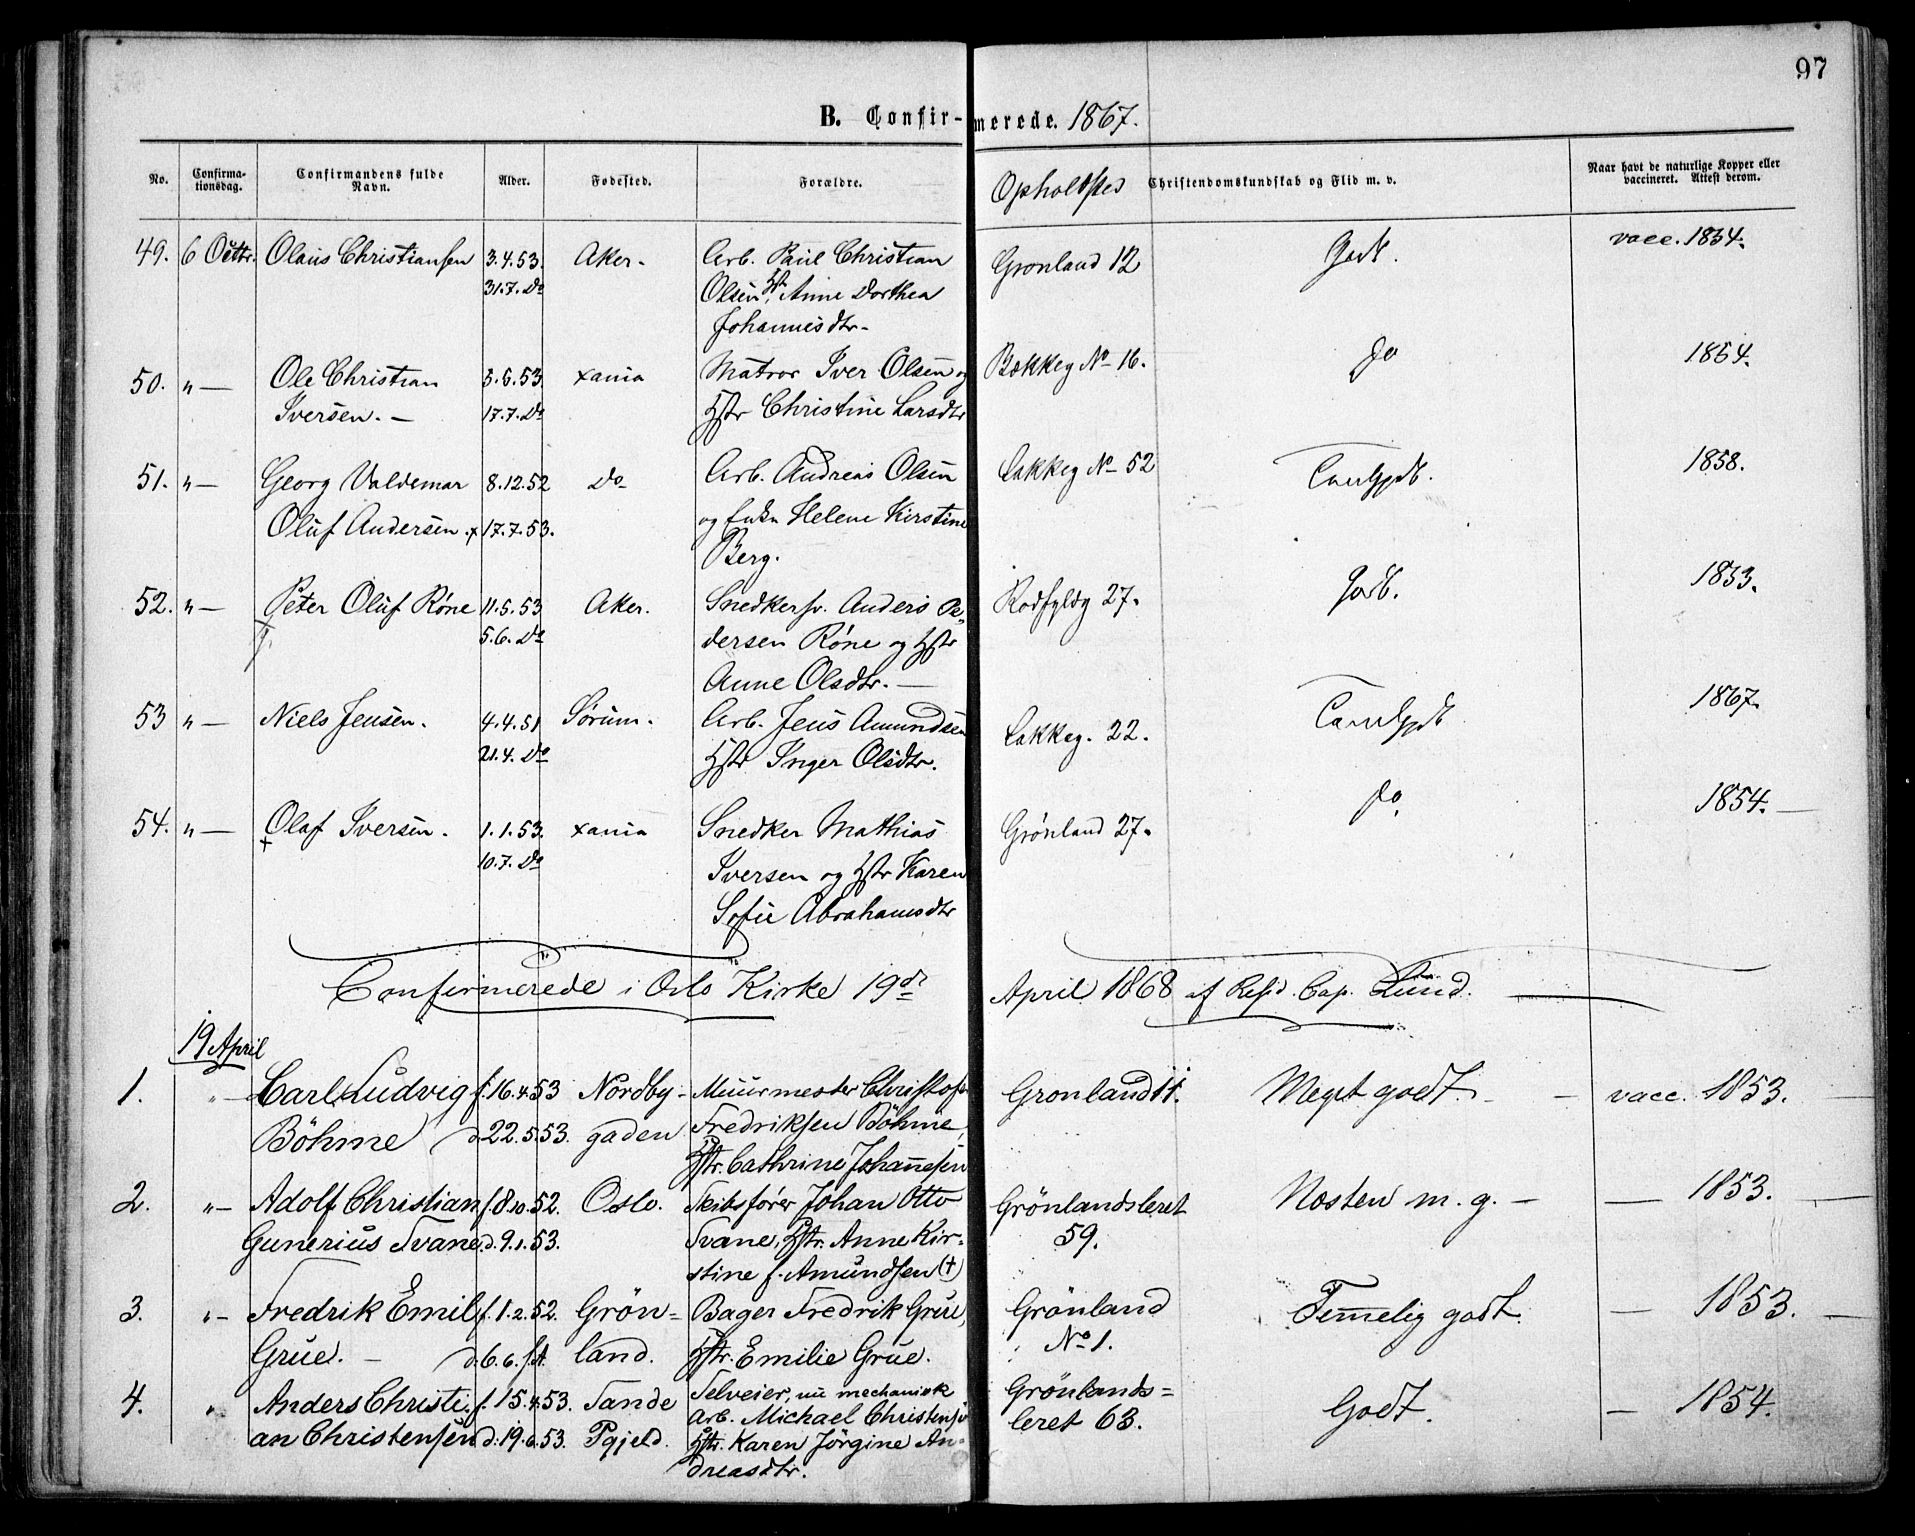 97
B. Confirmerede. 1867.
No. Confirmationsdag. Confirmandens fulde Navn. Alder. Fødested. Forældre. Opholdsted Christendomskundskab og Flid m. v. Naar havt de naturlige Kopper eller vaccineret. Attest derom.
49. 6 Octbr. Olaus Christiansen 3.4.53. Aker. Arb. Paul Christian Gronland 12 Godt. vacc. 1854.
31.7. Do Olsen, Hst. Anne Dorthea
Johannesdtr.
50. „ — Ole Christian 5.6.53. xania Matros Iver Olsen og Bækkeg No 16. do 1854.
Iversen. — 17.7. Do Hstr Christine Larsdtr
51. „ — Georg Valdemar 8.12.52 Do Arb. Andreas Olsen Lakkeg No 52 1858.
Oluf Andersen. x 17.7.53. og Helene Kirstine
Berg.
52. „ — Peter Oluf Röne 11.5.53 Aker. Snedkersv. Anders Pe- Rodfyldg 27. Godt. 1853.
5.6. Do dersen Röne og Hstr
Anne Olsdtr. —
53 „ — Niels Jensen. 4.4.51 Sørum. Arb. Jens Amundsen Lakkeg. 22. 1867.
21.4. Do Hstr Inger Olsdtr.
54. „ — Olaf Iversen. 1.1.53. xania Snedker Mathias Grönland 27. do 1854. —
x 10.7. Do Iversen og Hstr Karen
Sofie Abrahamsdtr
Confirmerede i Oslo Kirke 19de April 1868 af Resd. Cap. Lund.
19 April
1. „ — Carl Ludvig f. 16.4.53 Nordby- Muurmester Christofer Gronland 11. Meget godt. — vacc. 1853.
Böhme d. 22.5.53. gaden Fredriksen Böhme,
Hstr. Cathrine Johannesen
2. „ — Adolf Christian f. 8.10.52. Oslo. Skibsfører Johan Otto Grönlandsleret Næsten m. g. — — 1853.
Gunerius Svane. d. 9.1.53. Svane, Hstr. Anne Kir- 59.
stine f. Amundsen (†)
3. „ — Fredrik Emil f. 1.2.52. Grön- Bager Fredrik Grue, Grönland Temmelig godt. — 1853. —
Grue. — d. 6.6. s.A. land. Hstr. Emilie Grue. No 1.
4. „ Anders Christi- f. 15.4.53. Sande Selveier, nu mechanisk Grönlands- Godt. — 1854.
an Christensen d. 19.6.53. Pgjeld. Arb. Michael Christensen leret 63.
Hstr. Karen Jörgine An-
dreasdtr.